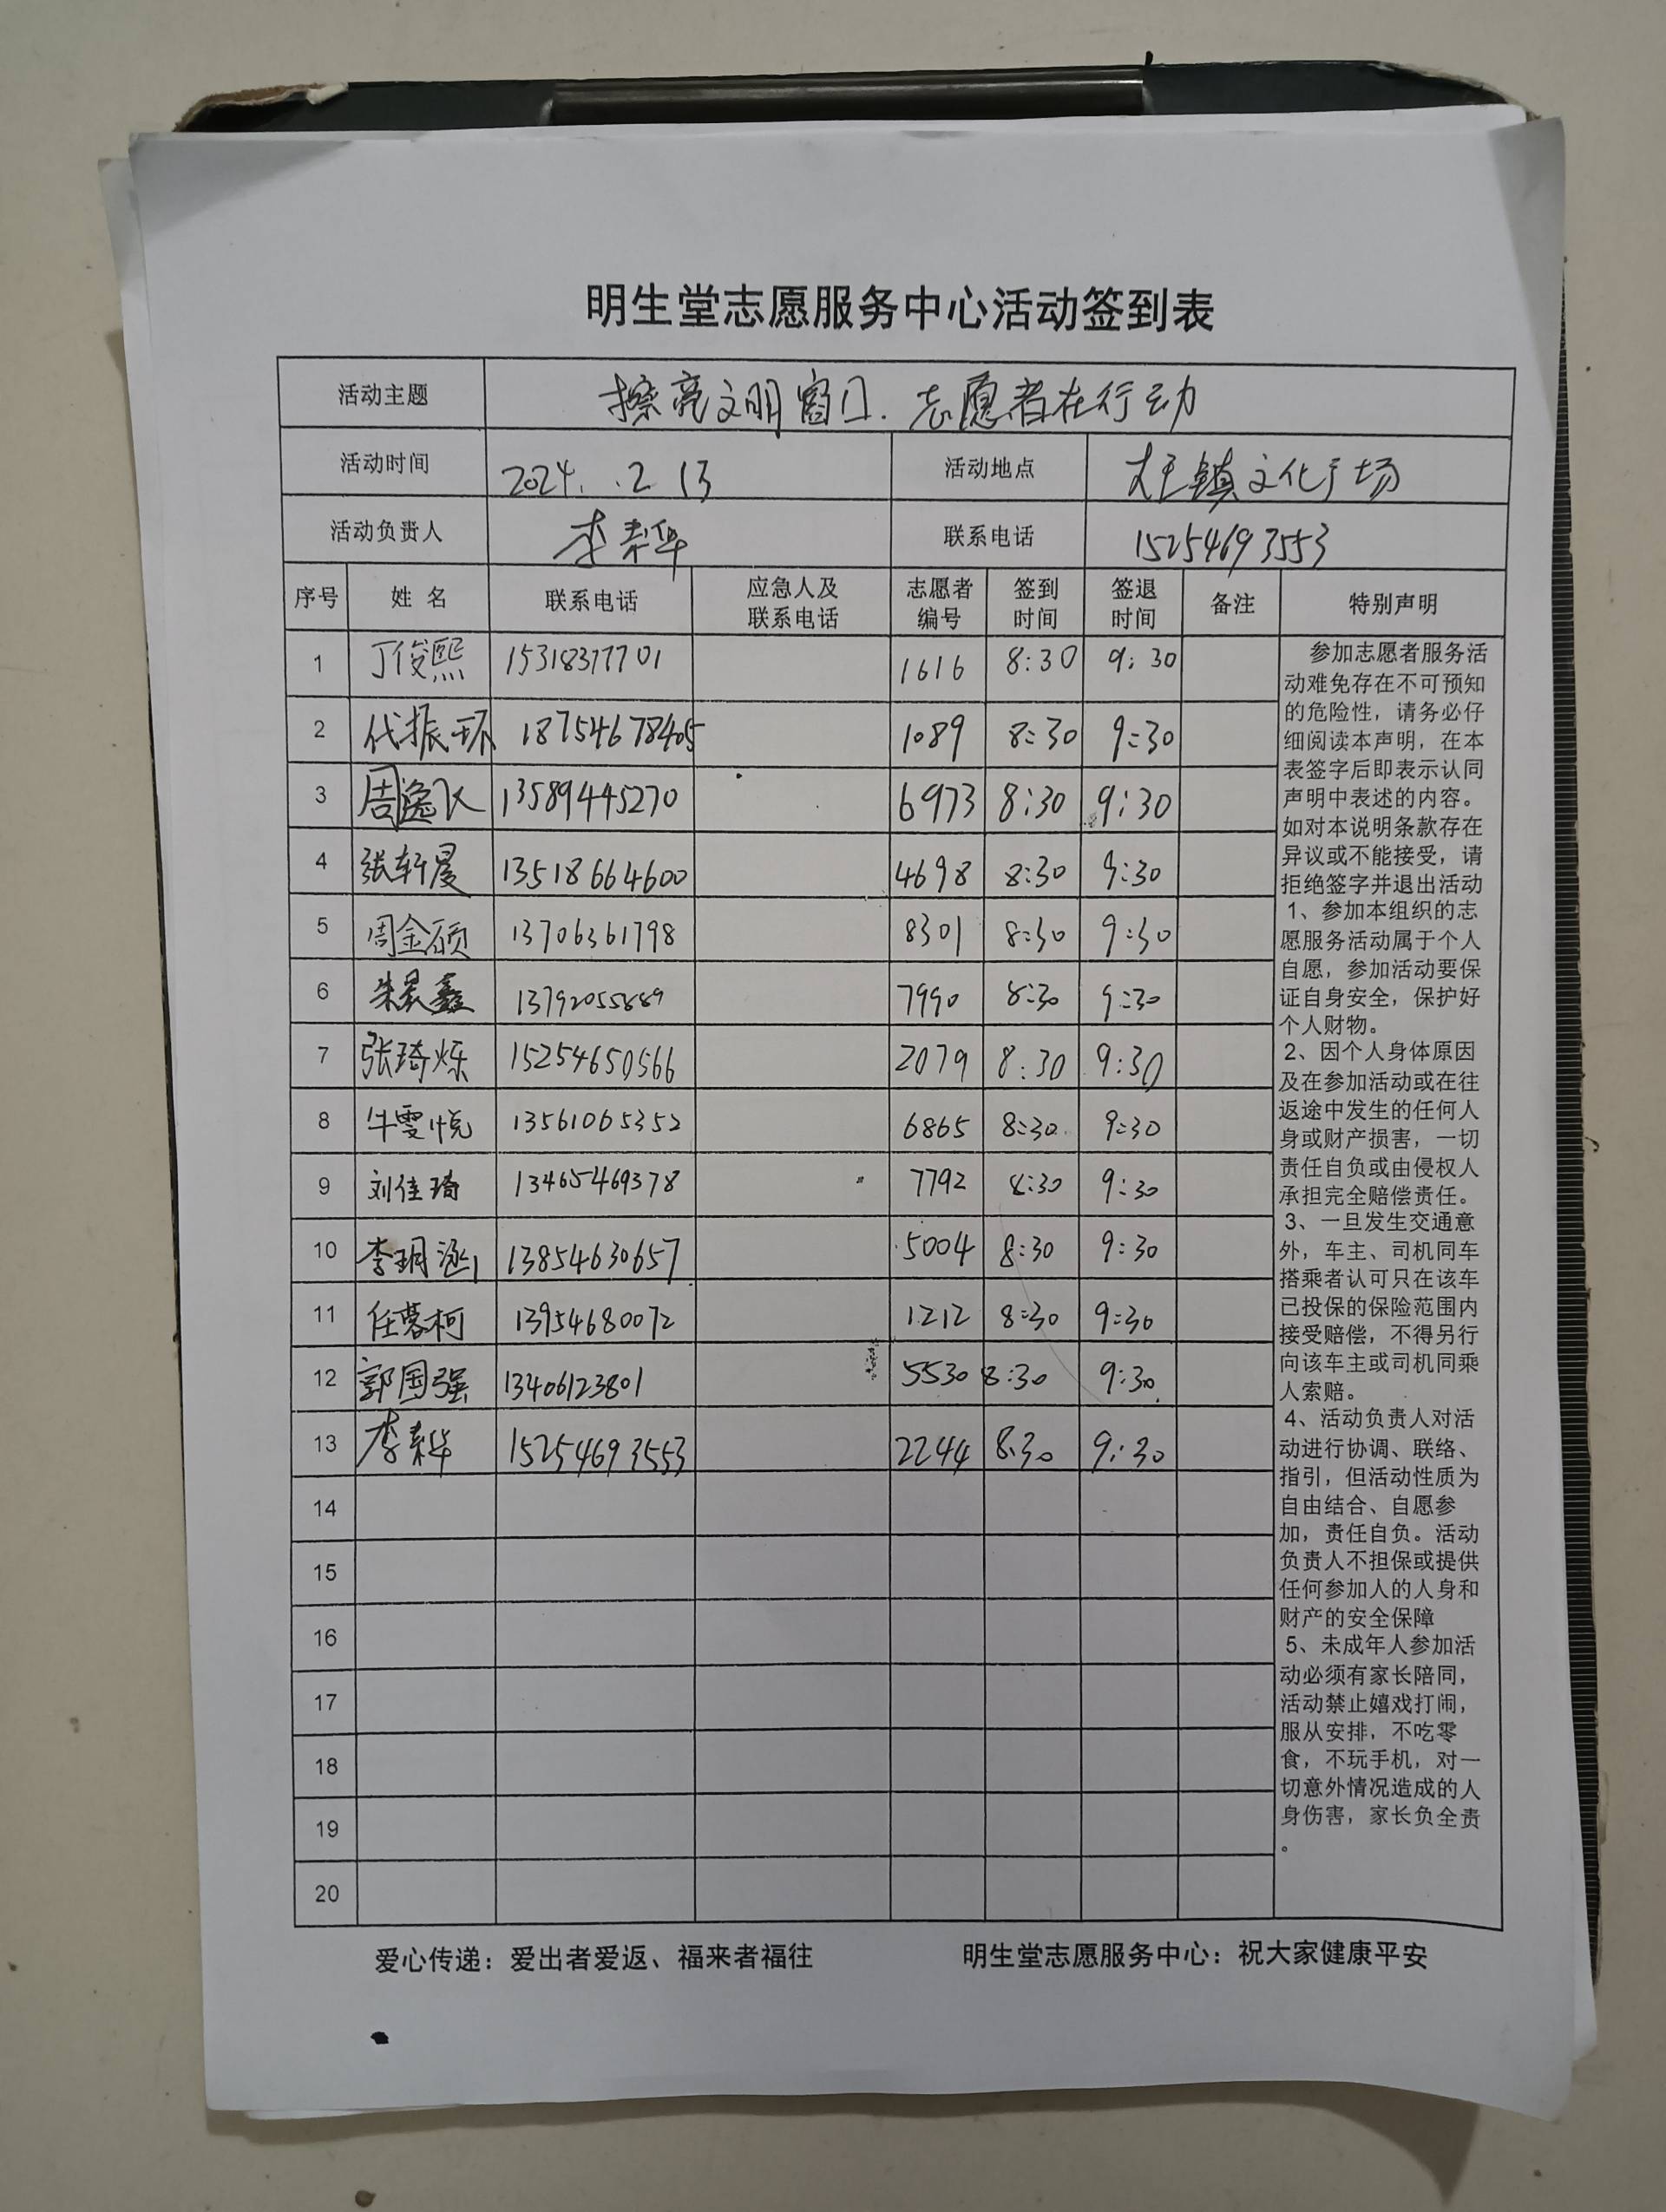 明生堂志愿服务中心活动签到表
活动主题 擦亮文明窗口.志愿者在行动
活动时间 2024. .2 13 活动地点 大王镇文化广场
活动负责人 李秀华 联系电话 15254693553
序号 姓名 联系电话 应急人及联系电话 志愿者编号 签到时间 签退时间 备注 特别声明
1 丁俊熙 15318377701 1616 8:30 9:30
2 代振环 18754678405 1089 8:30 9:30
3 周逸飞 13589445270 6973 8:30 9:30
4 张轩晨 13518664600 4698 8:30 9:30
5 周金硕 13706361798 8301 8:30 9:30
6 朱晨鑫 13792055889 7990 8:30 9:30
7 张琦烁 15254650566 2079 8:30 9:30
8 牛雯悦 13561065352 6865 8:30 9:30
9 刘佳琦 13465469378 7792 8:30 9:30
10 李玥涵 13854630657 5004 8:30 9:30
11 任蓉柯 13954680072 1212 8:30 9:30
12 郭国强 13406123801 5530 8:30 9:30
13 李秀华 15254693553 2244 8:30 9:30
14
15
16
17
18
19
20
参加志愿者服务活
动难免存在不可预知
的危险性，请务必仔
细阅读本声明，在本
表签字后即表示认同
声明中表述的内容。
如对本说明条款存在
异议或不能接受，请
拒绝签字并退出活动
1、参加本组织的志
愿服务活动属于个人
自愿，参加活动要保
证自身安全，保护好
个人财物。
2、因个人身体原因
及在参加活动或在往
返途中发生的任何人
身或财产损害，一切
责任自负或由侵权人
承担完全赔偿责任。
3、一旦发生交通意
外，车主、司机同车
搭乘者认可只在该车
已投保的保险范围内
接受赔偿，不得另行
向该车主或司机同乘
人索赔。
4、活动负责人对活
动进行协调、联络、
指引，但活动性质为
自由结合、自愿参
加，责任自负。活动
负责人不担保或提供
任何参加人的人身和
财产的安全保障
5、未成年人参加活
动必须有家长陪同，
活动禁止嬉戏打闹，
服从安排，不吃零
食，不玩手机，对一
切意外情况造成的人
身伤害，家长负全责
。
爱心传递：爱出者爱返、福来者福往 明生堂志愿服务中心：祝大家健康平安